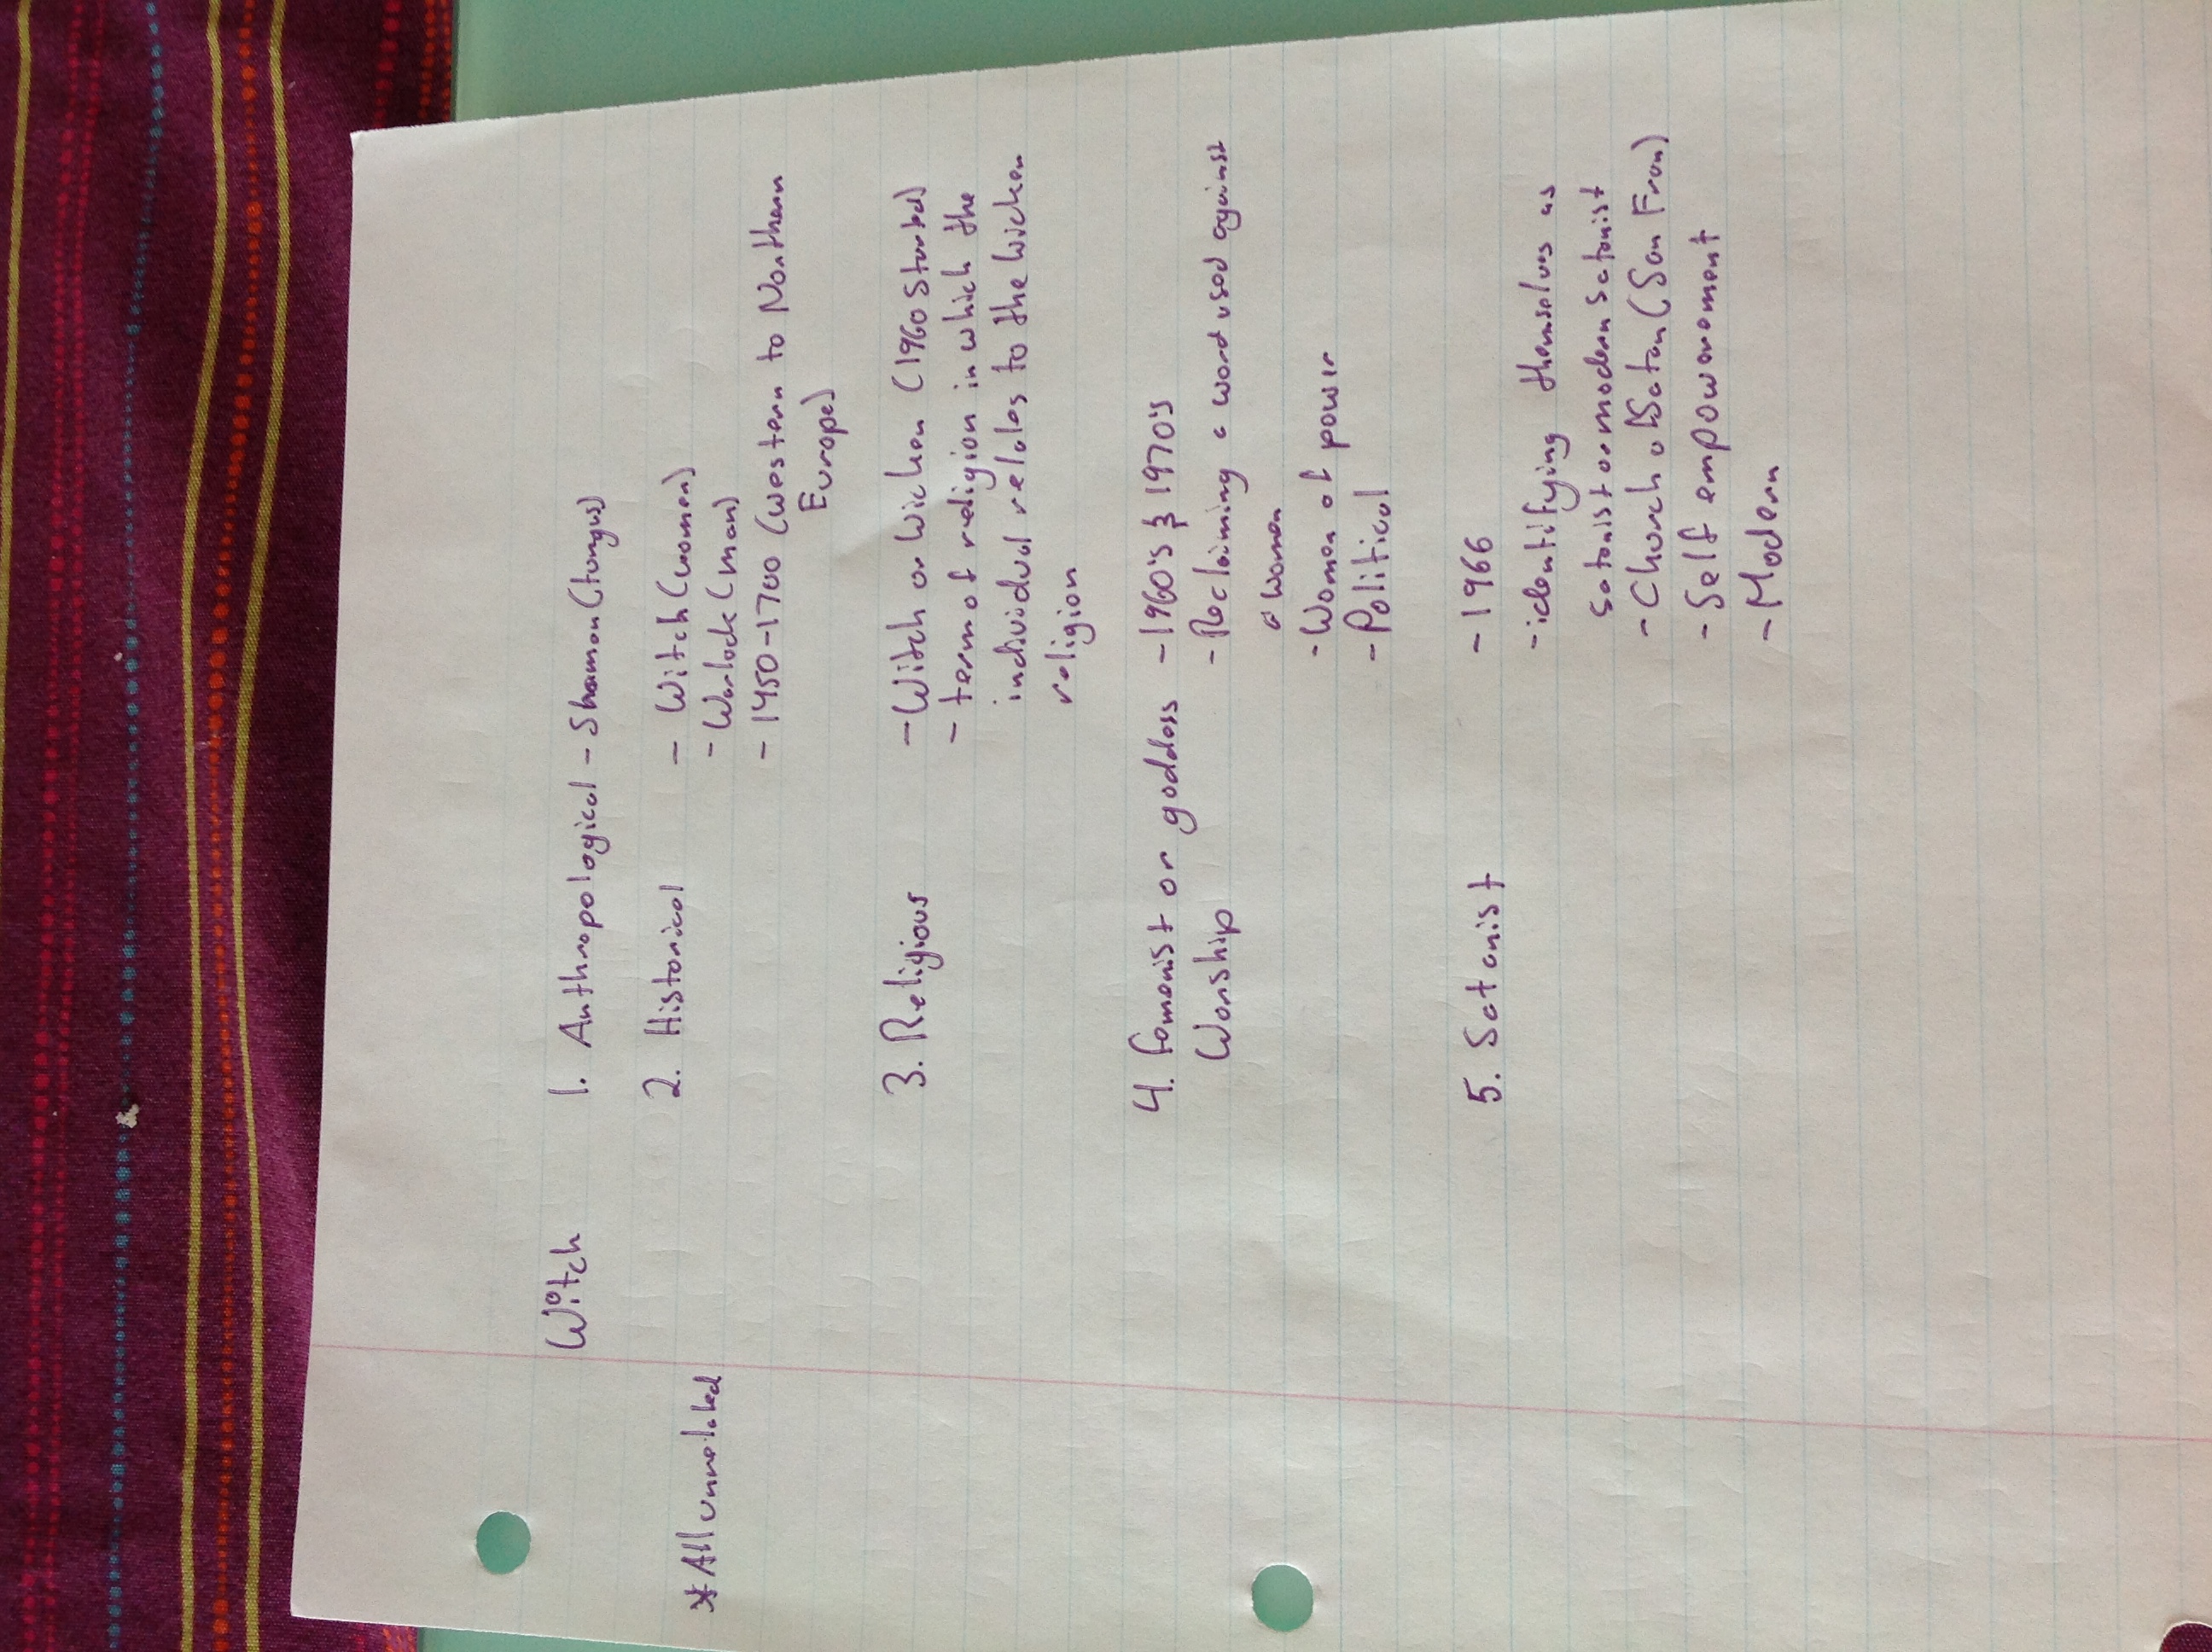 Witch 1. Anthropological - Shaman (tungus)
2. Historical - Witch (women)
*All unrelated - Warlock (man)
- 1450-1700 (western to Northern
Europe)
3. Religious - Witch or Wichen (1960 started)
- term of religion in which the
individual relates to the Wichen
religion
4. femenist or goddess - 1960's & 1970's
Worship - Reclaiming a word used against
a women
- Women of power
- Political
5. Satanist - 1966
- identifying themselves as
satanist or modern satanist
- Church of Satan (San Fran)
- Self empowerement
- Modern